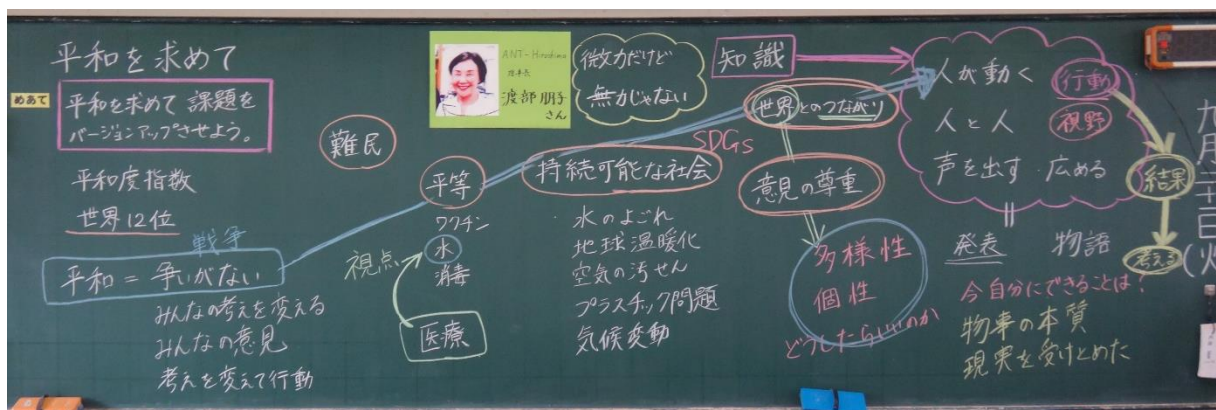 平和を求めて
めあて
平和を求めて 課題を
バージョンアップさせよう。
平和度指数
世界12位
戦争
平和 = 争いがない
みんなの考えを変える
みんなの意見
考えを変えて行動
難民
視点
平等
ワクチン
水
消毒
医療
ANT-Hiroshima
理事長
渡部 朋子
さん
微力だけど
無力じゃない
SDGs
持続可能な社会
水のよごれ
地球温暖化
空気の汚せん
プラスチック問題
気候変動
知識
世界とのつながり
意見の尊重
多様性
個性
どうしたらいいのか
人が動く
行動
人と人
視野
声を出す 広める
発表 物語
今自分にできることは!
物事の本質
現実を受けとめた
結果
考える